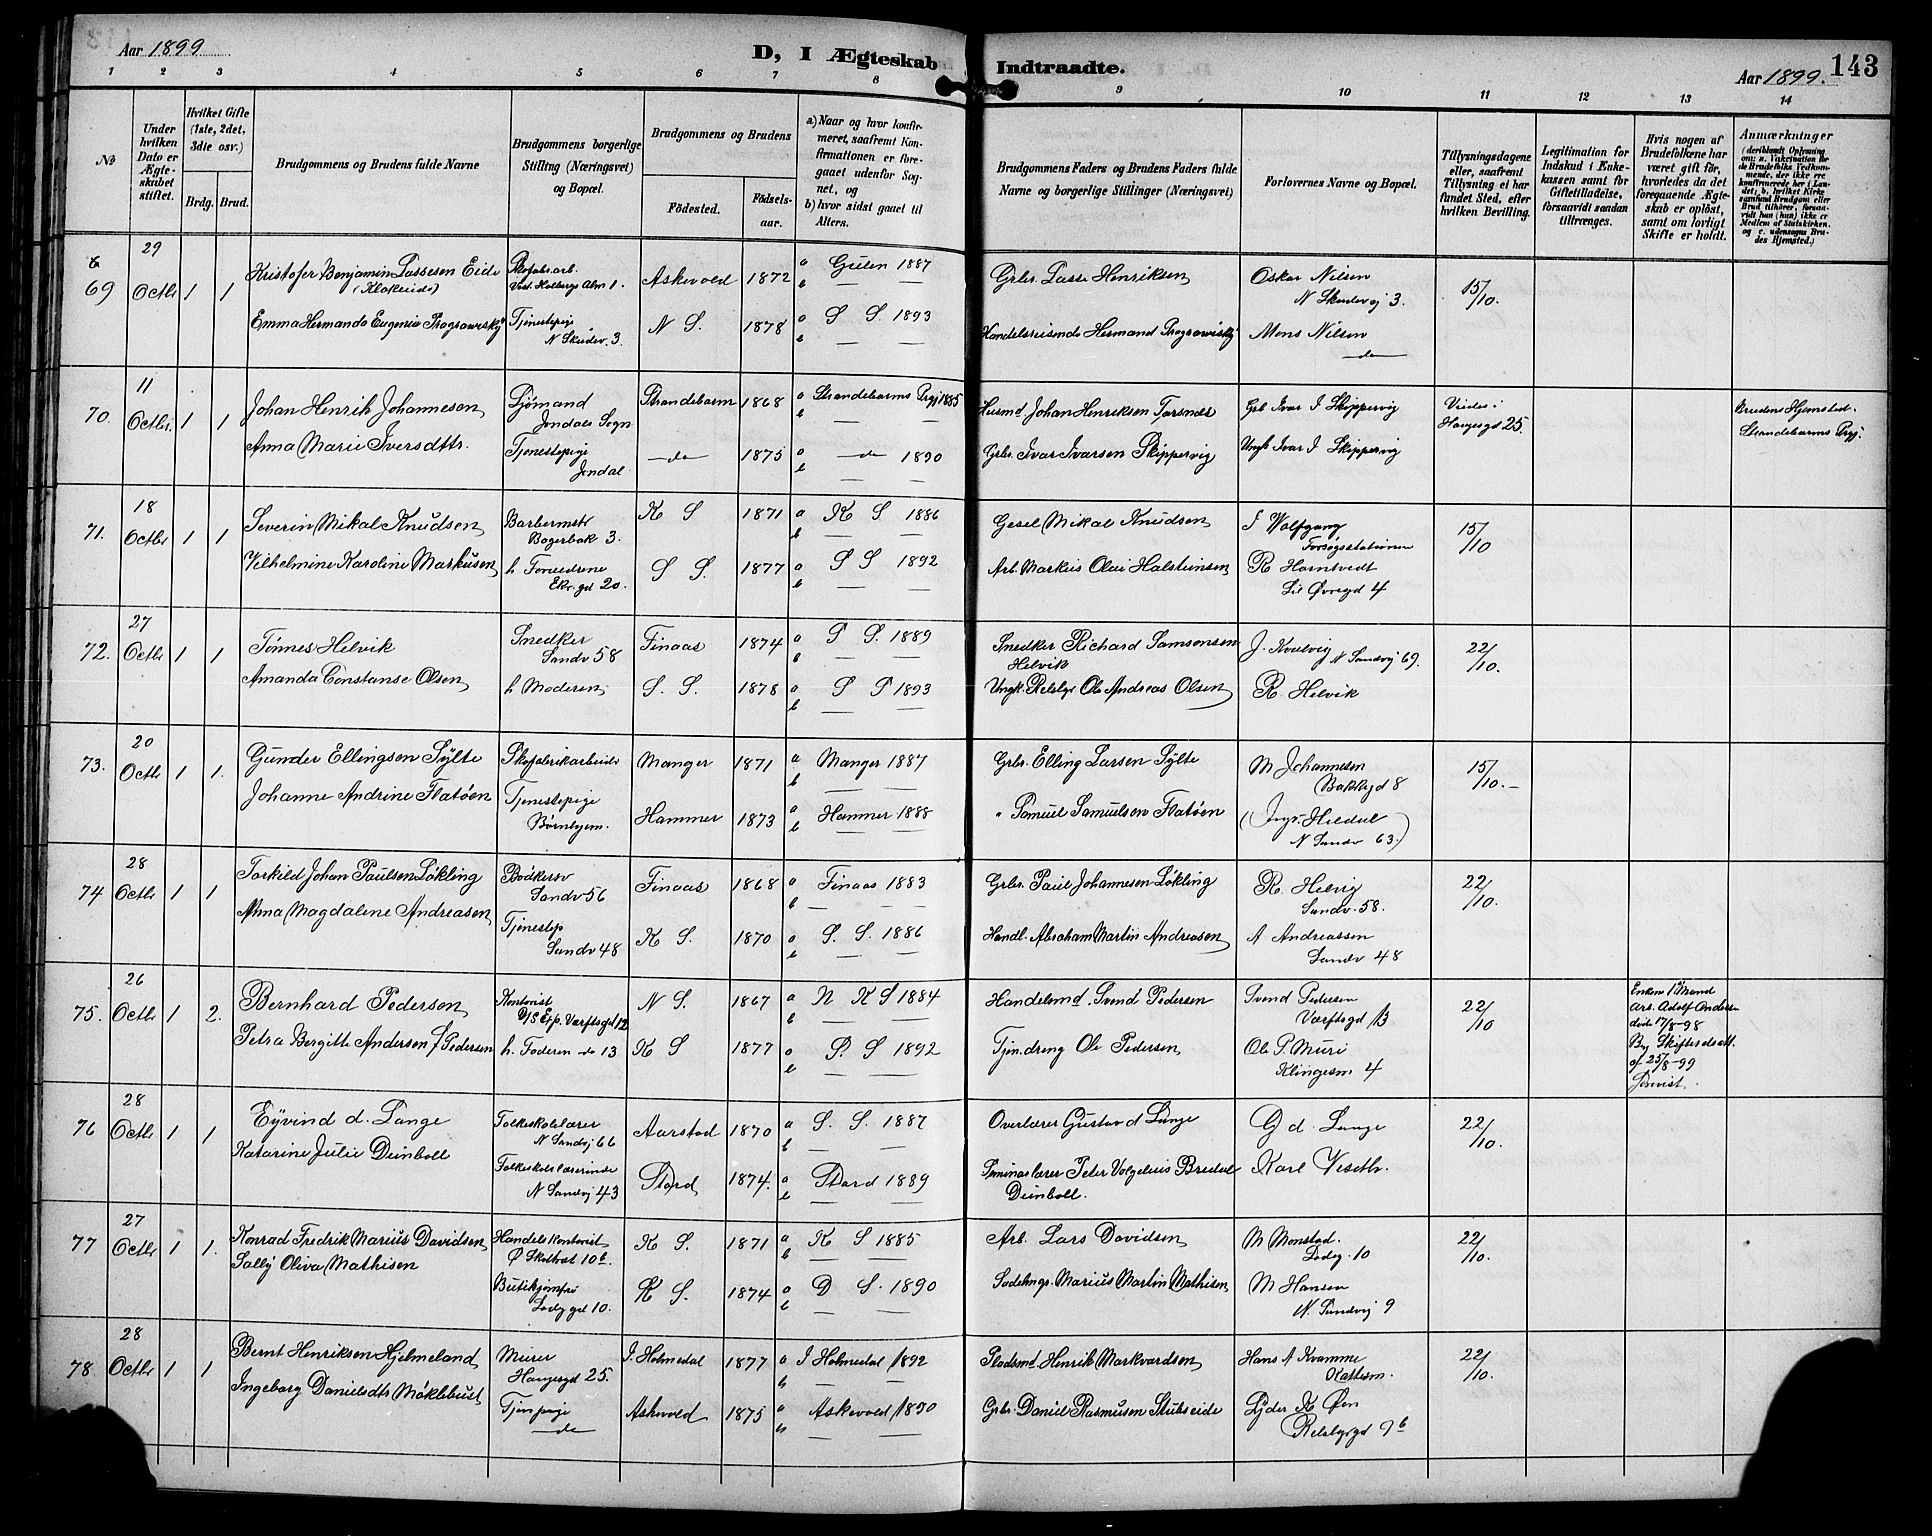 Aar 1899
D, I Ægteskab
Indtraadte.
Aar 1899. 143
1 2 3 4 5 6 7 8 9 10 11 12 13 14
No
Under hvilken Dato er Ægteskabet stiftet.
Hvilket Gifte (1ste, 2det, 3die osv.)
Brdg. Brud.
Brudgommens og Brudens fulde Navne
Brudgommens borgerlige Stilling (Næringsvei) og Bopæl.
Brudgommens og Brudens
Födested. Födselsaar.
a) Naar og hvor konfirmeret, saafremt Konfirmationen er foregaaet udenfor Sognet, og
b) hvor sidst gaaet til Alters.
Brudgommens Faders og Brudens Faders fulde Navne og borgerlige Stillinger (Næringsvei)
Forlovernes Navne og Bopæl.
Tillysningsdagene eller, saafremt Tillysning ei har fundet Sted, efter hvilken Bevilling.
Legitimation for Indskud i Enkekassen samt for Giftetilladelse, forsaavidt saadan tiltrænges.
Hvis nogen af Brudefolkene har været gift før, hvorledes da det foregaaende Ægteskab er opløst, samt om lovligt Skifte er holdt.
Anmærkninger
69 29 Octbr 1 1
Kristofer Benjamin Lassesen Eide
(Klokeide)
Skofabr.arb.
Askevold 1872 a Gulen 1887
b —
Grbr. Lasse Henriksen
Oskar Nilsen
N Skudevj 3.
15/10.
Emma Hermanda Eugenia
Tjenestepige
N Skudev. 3.
N S. 1878 a S S. 1893
b — —
Handelsreisende Hermand
Mons Nilsen
do
70. 11 Octbr. 1 1
Johan Henrik Johannesen
Sjömand
Jondals Sogn
Strandebarm 1868 a Strandebarms Prgj 1885
b — —
Husmd Johan Henriksen Torsnes
Grb Ivar I Skippervig
Viedes i
Haugesgd 25.
Brudens Hjemsted
Strandebarms Prgj.
Anna Marie Iversdttr.
Tjenestepige
Jondal
do 1875 a do 1890
b — —
Grbr. Ivar Ivarsen Skippervig
Ungk Ivar I Skippervig
71. 18 Octbr 1 1
Severin Mikal Knudsen
Barbermstr
Bagerbak 3.
K S 1871 a K S 1886
b — —
Gesel Mikal Knudsen
J Wolfgang
Forsøgsstationen
15/10
Vilhelmine Karoline Markusen
h Forældrene
Ekr.gd 20.
S S. 1877 a S S 1892
b — —
Arb. Markus Olai Halsteinsen
R Hamtvedt
Lil Øvregd 4
72. 27 Octbr 1 1
Tønnes Helvik
Snedker
Sandv 58
Finaas 1874 a S S. 1889
b — —
Snedker Richard Samsonsen
Helvik
N Sandvj 69.
22/10.
Amanda Constanse Olsen
h Moderen
S. S. 1878 a S S 1893
b — —
Ungk. Ole Andreas Olsen
R. Helvik
73. 20 Octb 1 1.
Gunder Ellingsen Sylte
Skofabrikarbeider
Manger 1871 a Manger 1887
b — —
Grbr. Elling Larsen Sylte
M Johannesen
Bakkegd 8
15/10.—
Johanne Andrine Flatöen
Tjenestepige
Börnehjem.
Hammer 1873 a Hammer 1888
b — —
" Samuel Samuelsen Flatöen
N Sandv 63.)
74 28 Octbr 1 1
Torkild Johan Paulsen Løkling
Bödkersv
Sandv 56
Finaas 1868 a Finaas 1883
b — —
Grbr. Paul Johannesen Løkling
R. Helvig
Sandv. 58.
22/10.
Anna Magdalene Andreasen
Tjenestep
Sandv 48
K S. 1870 a S. S. 1886
b — —
Handl. Abraham Martin Andreasen
A Andreassen
Sandv 48
75. 26 Octbr 1 2.
Bernhard Pedersen
Kontorist
D/S Exp. Værftsgd 12
N S. 1867 a N K S 1884
b — —
Handelsmd. Svend Pedersen
Svend Pedersen
Værftsgd 13
22/10
Enken 1 Mand
Arb. Adolf Andersen
døde 17/8-98
By Skifteretsatt.
af 25/8-99
Petra Bergitte Andersen f Pedersen
h. Faderen do 13
K S 1877 a S. S 1892
b — —
Tjen.dreng Ole Pedersen
Ole P. Muri
Klingesm 4
76 28 Octbr 1 1
Eyvind d. Lange
Folkeskolelærer
N Sandvj 66
Aarstad 1870 a S. S. 1887
b — —
Overlærer Gustav d Lange
G d. Lange
22/10.
Katarine Julie Deinboll
Folkeskolelærerinde
N Sandvj 43
Stord 1874. a Stord 1889
b — —
Seminarlærer Peter Volqelius Bredal
Deinboll.
77 27 Octbr 1 1.
Konrad Fredrik Marius Davidsen
Handelskontorist
K S. 1871 a K S 1885
b — —
Arb. Lars Davidsen
M Monstad.
Ladeg. 10
22/10.
Sally Oliva Mathisen
Butikjomfru
Ladeg gd 10.
K S. 1874 a D S. 1890
b — —
Marius Martin Mathisen
M Hansen
N. Sandvj 9
78. 28 Octbr 1 1
Bernt Henriksen Hjelmeland
Murer
Haugesgd 25.
I. Holmedal 1877 a I Holmedal 1892
b —
Pladsmd. Henrik Markvardsen
Hans A Kvamme
22/10.
Ingeborg Danielsdtr Møklebust
Tjen.pige
do
Askevold 1875 a Askevold 1890
b —
Grbr. Daniel Rasmusen Stubseide
Lyder K Øen
9b